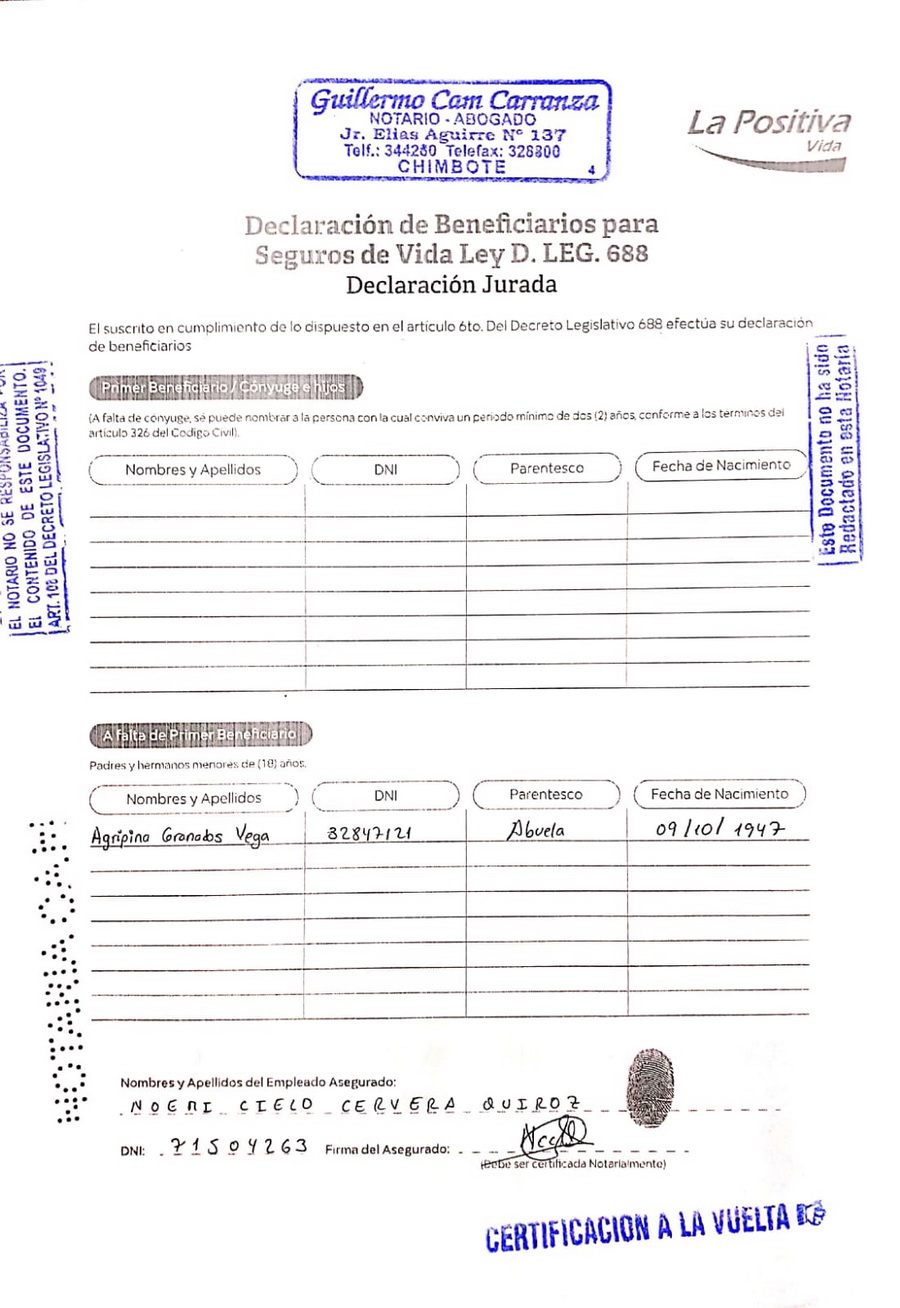 Guillermo Cam Carranza
NOTARIO - ABOGADO
Jr. Elias Aguirre N° 137
Telf.: 344260 Telefax: 328800
CHIMBOTE
4
La Positiva
Vida
Declaración de Beneficiarios para
Seguros de Vida Ley D. LEG. 688
Declaración Jurada
El suscrito en cumplimiento de lo dispuesto en el artículo 6to. Del Decreto Legislativo 688 efectúa su declaración
de beneficiarios
EL NOTARIO NO SE RESPONSABILIZA POR
EL CONTENIDO DE ESTE DOCUMENTO.
ART. 108 DEL DECRETO LEGISLATIVO N° 1049
Este Documento no ha sido
Redactado en esta Notaría
Primer Beneficiario / Cónyuge e hijos
(A falta de cónyuge, se puede nombrar a la persona con la cual conviva un periodo mínimo de dos (2) años, conforme a los terminos del
artículo 326 del Codigo Civil).
Nombres y Apellidos DNI Parentesco Fecha de Nacimiento
A falta de Primer Beneficiario
Padres y hermanos menores de (18) años.
Nombres y Apellidos DNI Parentesco Fecha de Nacimiento
Agripina Granados Vega 32847121 Abuela 09/10/1947
NOTARIA CAM
Nombres y Apellidos del Empleado Asegurado:
NOEMI CIELO CERVERA QUIROZ
DNI: 71504263 Firma del Asegurado:
(Debe ser certificada Notarialmente)
CERTIFICACION A LA VUELTA